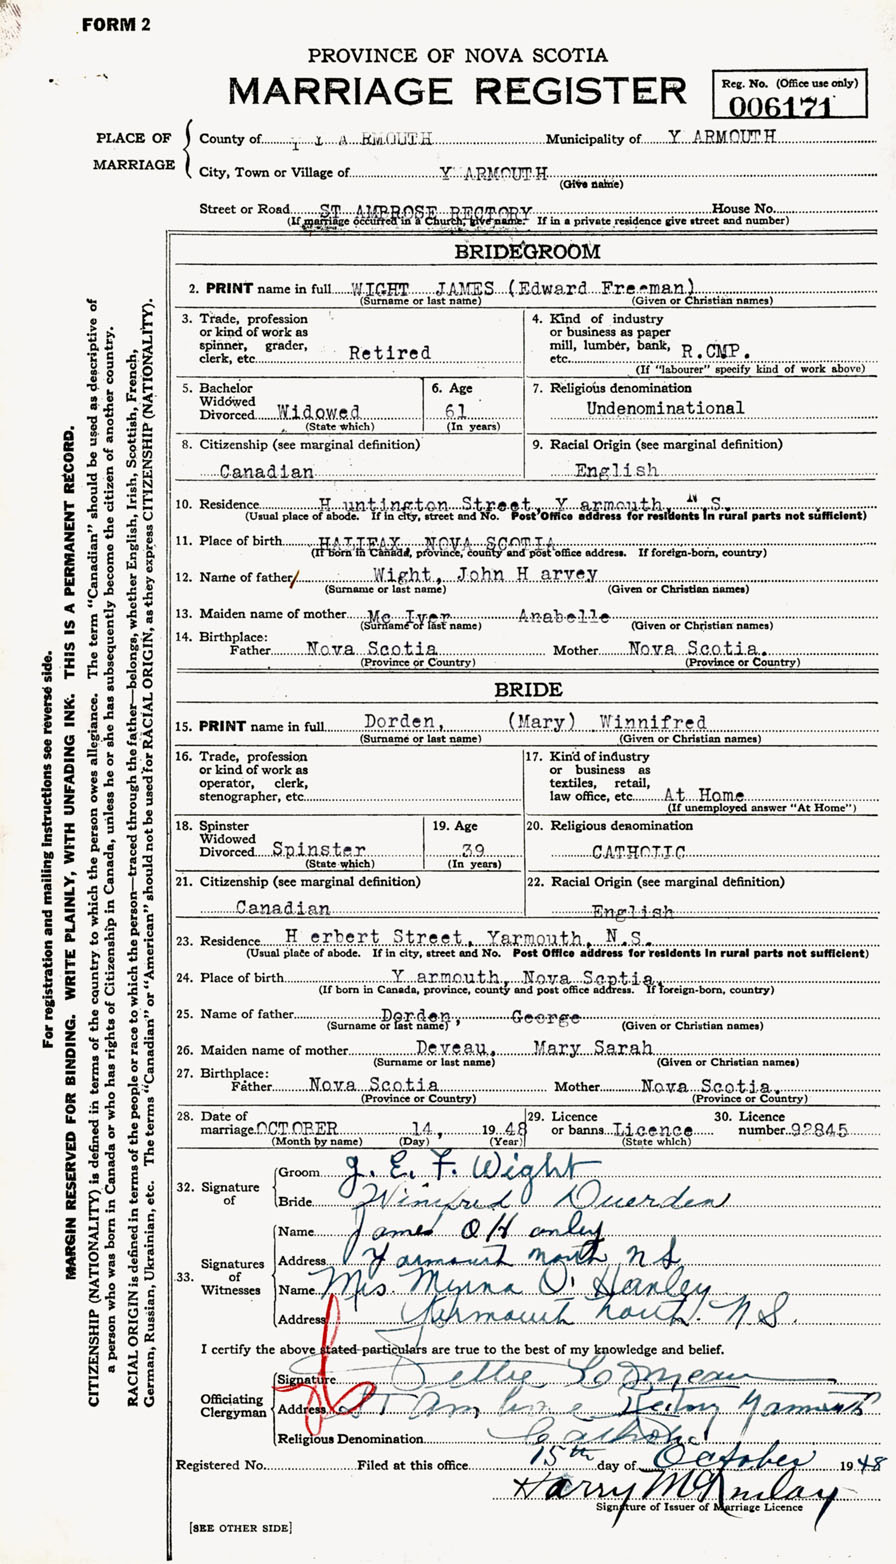 FORM 2
PROVINCE OF NOVA SCOTIA
MARRIAGE REGISTER
Reg. No. (Office use only)
006171
PLACE OF MARRIAGE
County of Y ARMOUTH Municipality of Y ARMOUTH
City, Town or Village of Y ARMOUTH
(Give name)
Street or Road ST AMBROSE RECTORY House No.
(If marriage occurred in a Church, give name. If in a private residence give street and number)
BRIDEGROOM
2. PRINT name in full WIGHT JAMES (Edward Freeman)
(Surname or last name) (Given or Christian names)
3. Trade, profession
or kind of work as
spinner, grader,
clerk, etc. Retired
4. Kind of industry
or business as paper
mill, lumber, bank,
etc. R.CMP.
(If "labourer" specify kind of work above)
5. Bachelor
Widowed
Divorced Widowed
(State which)
6. Age
61
(In years)
7. Religious denomination
Undenominational
8. Citizenship (see marginal definition)
Canadian
9. Racial Origin (see marginal definition)
English
10. Residence H untington Street, Y armouth, N.S.
(Usual place of abode. If in city, street and No. Post Office address for residents in rural parts not sufficient)
11. Place of birth HALIFAX NOVA SCOTIA
(If born in Canada, province, county and post office address. If foreign-born, country)
12. Name of father Wight, John H arvey
(Surname or last name) (Given or Christian names)
13. Maiden name of mother Mc Iver Anabelle
(Surname or last name) (Given or Christian names)
14. Birthplace:
Father Nova Scotia Mother Nova Scotia.
(Province or Country) (Province or Country)
BRIDE
15. PRINT name in full Dorden, (Mary) Winnifred
(Surname or last name) (Given or Christian names)
16. Trade, profession
or kind of work as
operator, clerk,
stenographer, etc.
17. Kind of industry
or business as
textiles, retail,
law office, etc. At Home
(If unemployed answer "At Home")
18. Spinster
Widowed
Divorced Spinster
(State which)
19. Age
39
(In years)
20. Religious denomination
CATHOLIC
21. Citizenship (see marginal definition)
Canadian
22. Racial Origin (see marginal definition)
English
23. Residence H erbert Street, Yarmouth, N.S.
(Usual place of abode. If in city, street and No. Post Office address for residents in rural parts not sufficient)
24. Place of birth Y armouth, Nova Scptia,
(If born in Canada, province, county and post office address. If foreign-born, country)
25. Name of father Dorden, George
(Surname or last name) (Given or Christian names)
26. Maiden name of mother Deveau, Mary Sarah
(Surname or last name) (Given or Christian names)
27. Birthplace:
Father Nova Scotia Mother Nova Scotia.
(Province or Country) (Province or Country)
28. Date of
marriage OCTOBER 14, 1948
(Month by name) (Day) (Year)
29. Licence
or banns Licence
(State which)
30. Licence
number 92845
32. Signature of
Groom J. E. F. Wight
Bride Winifred Duerden
33. Signatures of Witnesses
Name James O Hanley
Address Yarmouth North N S
Name Mrs. Minna O' Hanley
Address Yarmouth North. N S.
I certify the above stated particulars are true to the best of my knowledge and belief.
Officiating Clergyman
Signature Comeau
Address St Ambrose Yarmouth
Religious Denomination Catholic
Registered No. Filed at this office 15th day of October 1948
Harry McKinlay
Signature of Issuer of Marriage Licence
[SEE OTHER SIDE]
For registration and mailing instructions see reverse side.
MARGIN RESERVED FOR BINDING. WRITE PLAINLY, WITH UNFADING INK. THIS IS A PERMANENT RECORD.
CITIZENSHIP (NATIONALITY) is defined in terms of the country to which the person owes allegiance. The term "Canadian" should be used as descriptive of
a person who was born in Canada or who has rights of Citizenship in Canada, unless he or she has subsequently become the citizen of another country.
RACIAL ORIGIN is defined in terms of the people or race to which the person—traced through the father—belongs, whether English, Irish, Scottish, French,
German, Russian, Ukrainian, etc. The terms "Canadian" or "American" should not be used for RACIAL ORIGIN, as they express CITIZENSHIP (NATIONALITY).